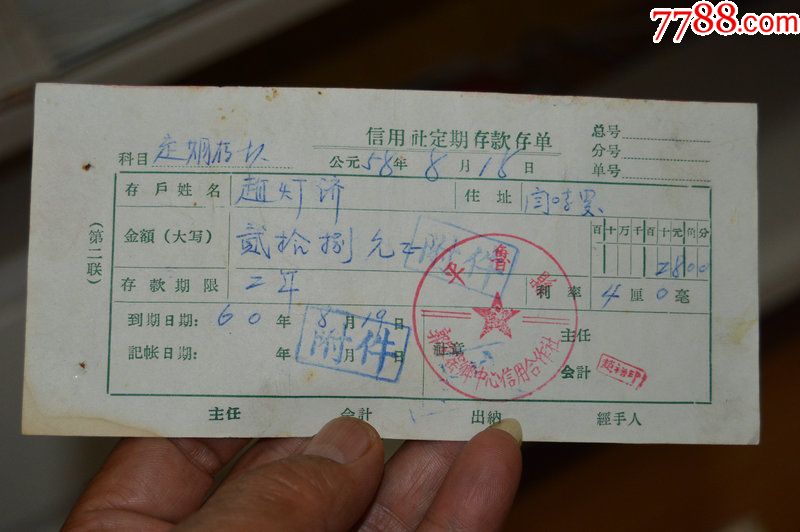 7788.com
信用社定期存款存单
总号
分号
单号
科目 定期存款
公元58年8月18日
存戶姓名 趙灯济
住址
金額(大写) 貳拾捌元
百十万千百十元角分
2800
附件
平魯县
中心信用合作社
存款期限 二年
利率 4厘0毫
到期日期: 60年8月19日
附件
主任
記帐日期: 年 月 日
社章
会計
(第二联)
主任 会計 出納 經手人